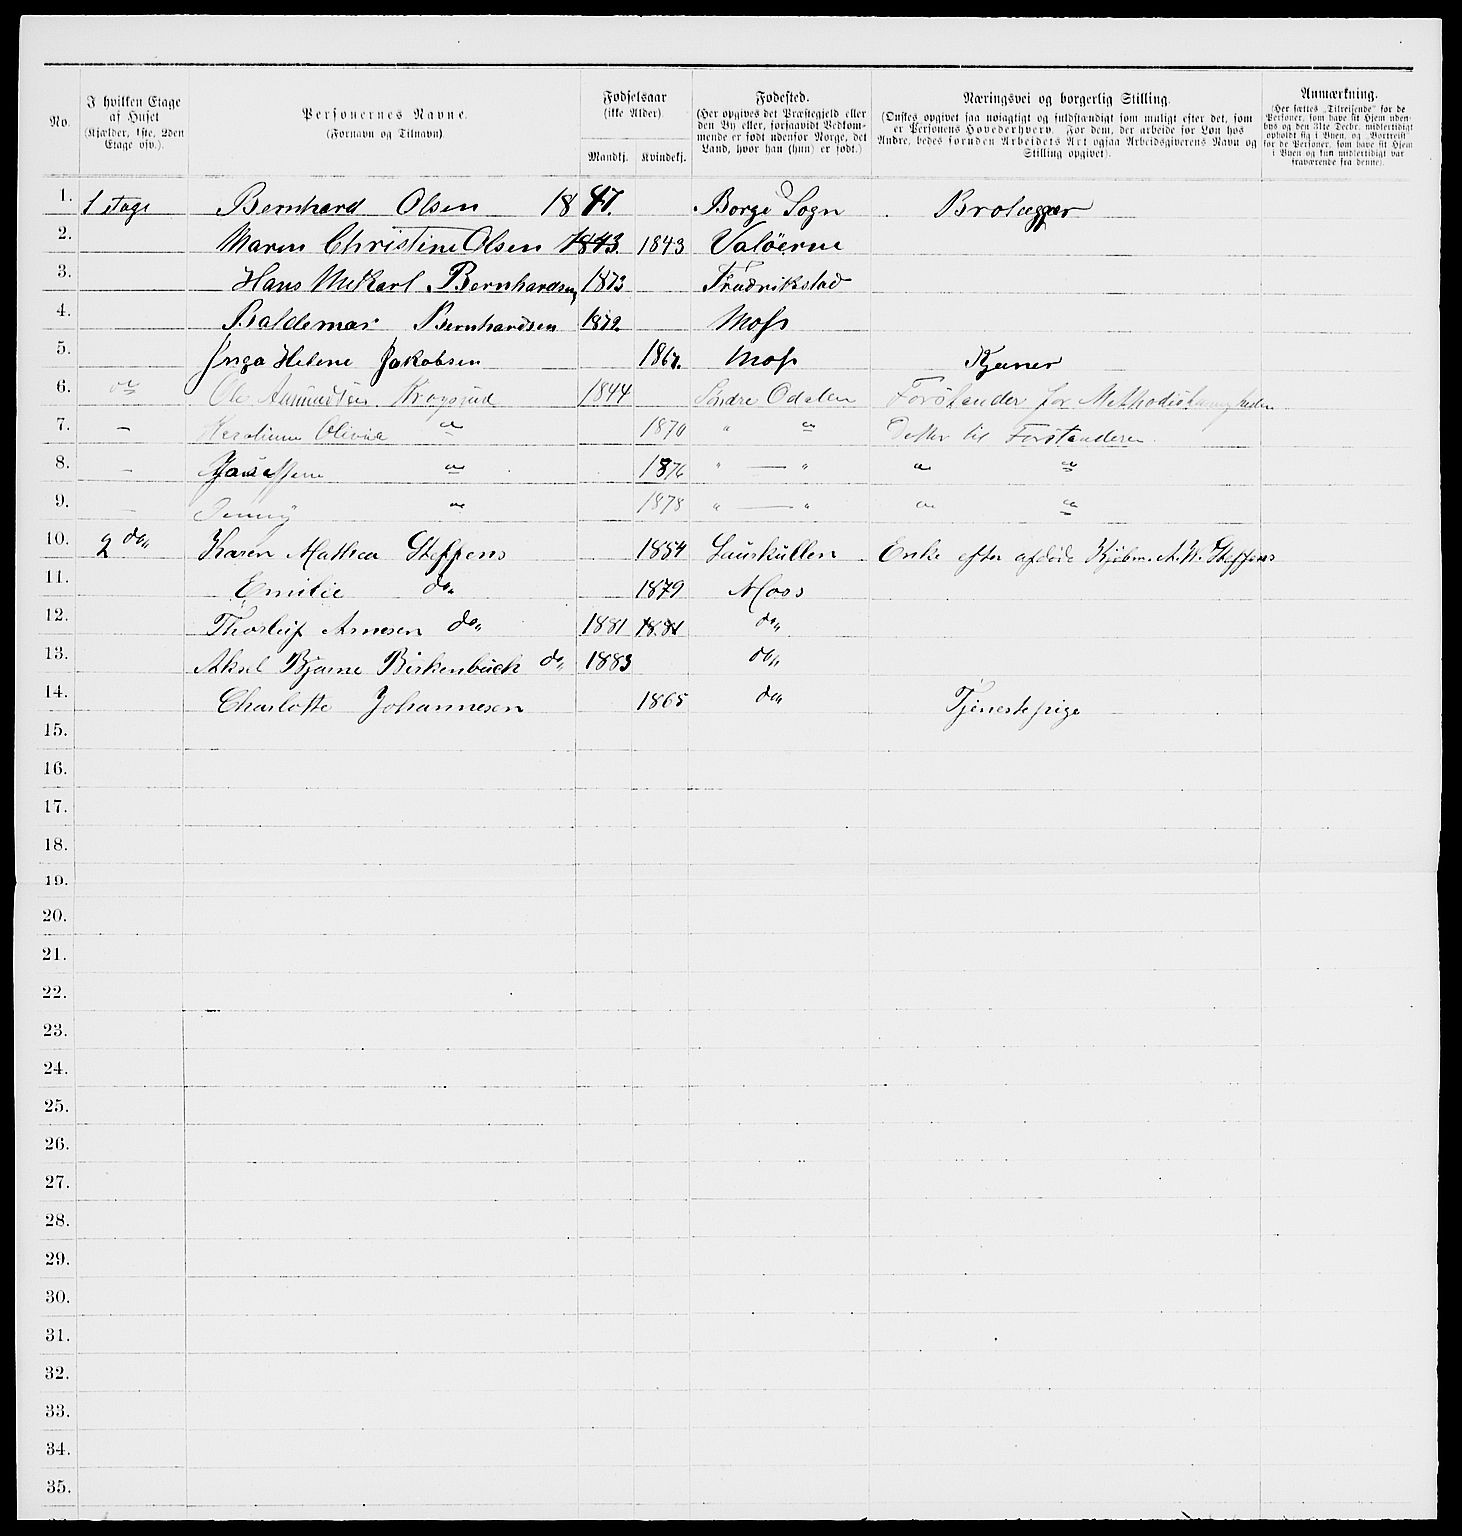 No. I hvilken Etage af Huset (Kjælder, 1ste, 2den Etage osv.). Personernes Navne. (Fornavn og Tilnavn). Fødselsaar (ikke Alder) Mandkj. Kvindekj. Fødested. (Her opgives det Præstegjeld eller den By eller, forsaavidt Vedkommende er født udenfor Norge, det Land, hvor han (hun) er født.) Næringsvei og borgerlig Stilling. (Ønskes opgivet saa nøiagtigt og fuldstændigt som muligt efter det, som er Personens Hovederhverv. For dem, der arbeide for Løn hos Andre, bedes foruden Arbeidets Art ogsaa Arbeidsgiverens Navn og Stilling opgivet). Anmærkning. (Her sættes „Tilreisende" for de Personer, som have sit Hjem udenbys og den 31te Decbr. midlertidigt opholdt sig i Byen, og „Bortreist" for de Personer, som have sit Hjem i Byen og kun midlertidigt var fraværende fra denne).
1. 1 stage Bernhard Olsen 18 47. Borge Sogn Brolægger
2. Maren Christine Olsen 1843. 1843 Valöerne
3. Hans Mekarl Bernhardsen 1873 Fredrikstad
4. Baldemar Bernhardsen 1872 Moss
5. Inga Helene Jakobsen 1867. Moss
6. Ole Aamundsen Krogsrud 1844 Søndre Odalen Forstander for Methodistmenigheden
7. – Olivia " 1870 " " Datter til Forstanderen
8. – " 1876 " — " " "
9. – Jenny " 1878 " — " " "
10. 2 do„ Karen Mathea Steffens 1854 Laurkullen Enke efter afdøde Kjøbm. A. W. Steffens
11. Emilie do„ 1879 Moss
12. Thorleif Arnesen do„ 1881 1881 do„
13. Aksel Bjarne Birkenbuch do„ 1883 do„
14. Charlotte Johannesen 1865 do„ Tjenestepige
15.
16.
17.
18.
19.
20.
21.
22.
23.
24.
25.
26.
27.
28.
29.
30.
31.
32.
33.
34.
35.